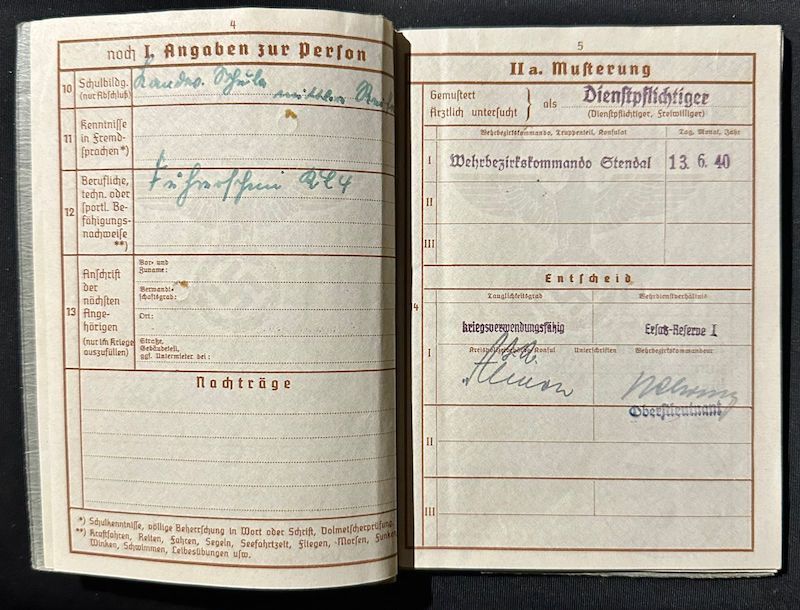 4
noch I. Angaben zur Person
10 Schulbildg.
(nur Abschluß)
Schule
mittlere
11 Kenntnisse
in Fremd-
sprachen*)
12 Berufliche,
techn. oder
sportl. Be-
fähigungs-
nachweise
**)
Führerschein Kl 4
13 Anschrift
der
nächsten
Ange-
hörigen
(nur im Kriege
auszufüllen)
Vor- und
Zuname:
Verwandt-
schaftsgrad:
Ort:
Straße,
Gebäudeteil,
ggf. Untermieter bei:
Nachträge
*) Schulkenntnisse, völlige Beherrschung in Wort oder Schrift, Dolmetscherprüfung.
**) Kraftfahren, Reiten, Fahren, Segeln, Seefahrtzeit, Fliegen, Morsen, Funken
Winken, Schwimmen, Leibesübungen usw.
5
II a. Musterung
Gemustert
Ärztlich untersucht
als Dienstpflichtiger
(Dienstpflichtiger, Freiwilliger)
Wehrbezirkskommando, Truppenteil, Konsulat Tag, Monat, Jahr
I Wehrbezirkskommando Stendal 13. 6. 40
II
III
Entscheid
Tauglichkeitsgrad Wehrdienstverhältnis
4
kriegsverwendungsfähig Ersatz-Reserve I
I Konsul Unterschriften Wehrbezirkskommandeur
Oberstleutnant
II
III